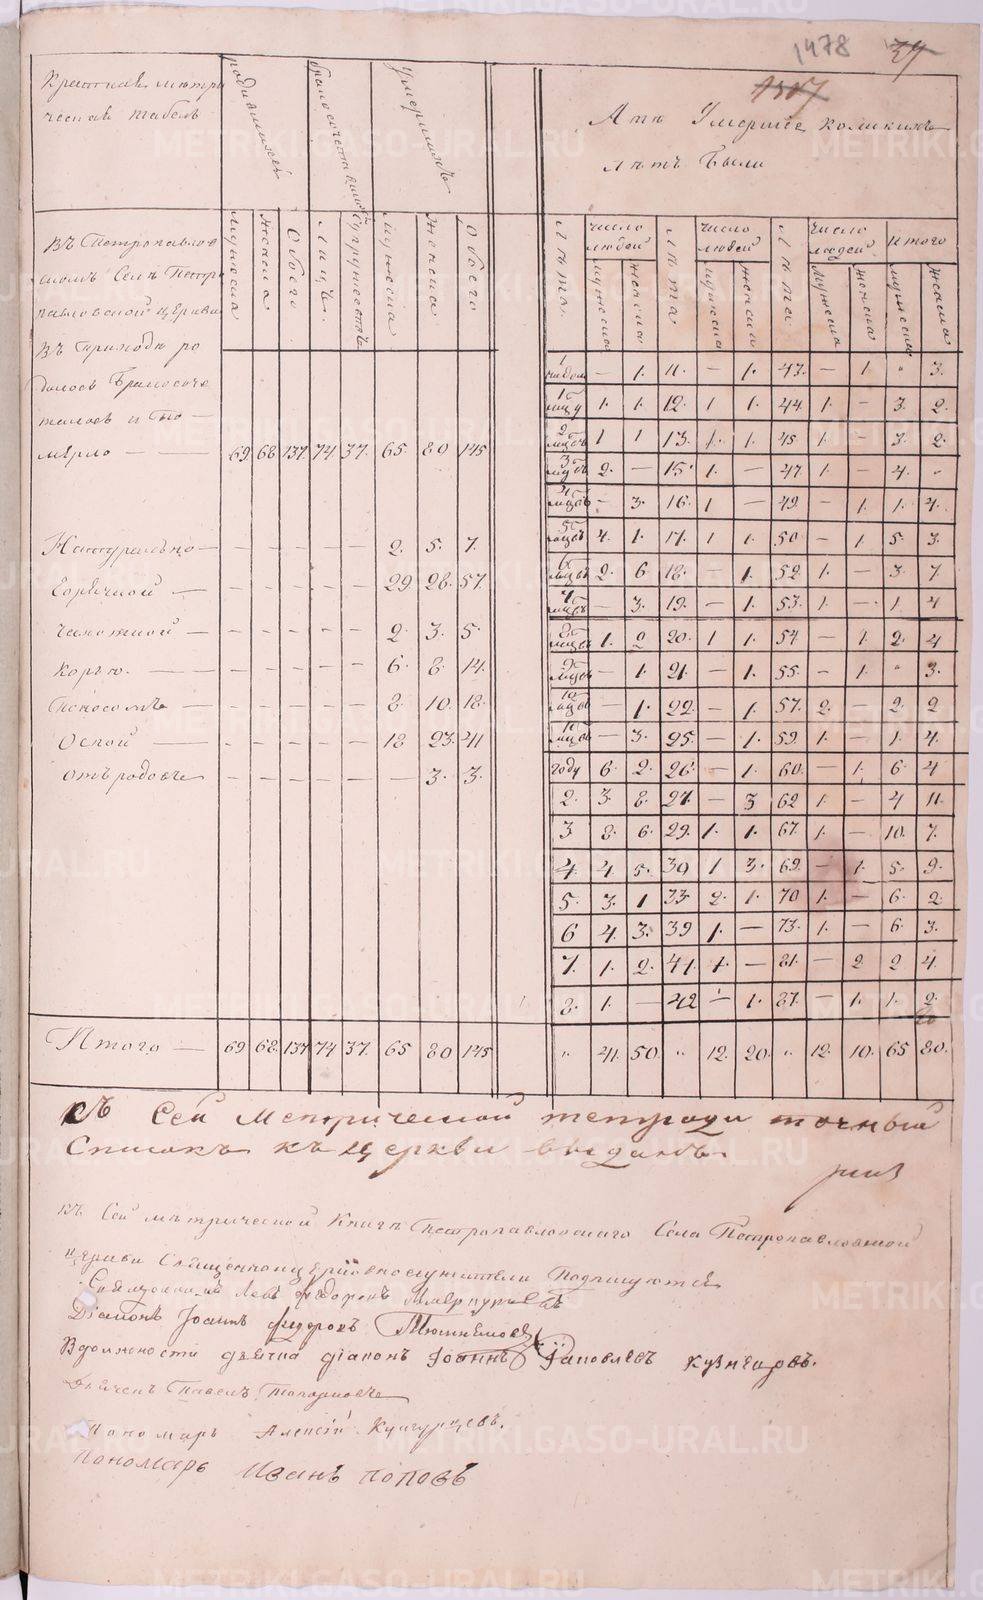 1478 37
1507
Краткая метри
ческая табель
родившихся
бракосочетавшихся
умершихъ
А те Умершие коликихъ
летъ были
мужеска
женска
Обоего
Лицъ
Супружествъ
мужеска
женска
обоего
Въ Петропавлов
скомъ Селе Петро
павловской церкви
въ приходе ро
дилось бракосоче
талось и по
мерло — 69 68 137 74 37 65 80 145
Натурально — — — — — — 2. 5. 7.
Горячкой — — — — — — 29 28 57
Чахоткой — — — — — — 2. 3. 5.
Корью — — — — — — 6. 8. 14.
Поносомъ — — — — — — 8. 10. 18.
Оспой — — — — — — 18 23 41
отъ родовъ — — — — — — 3. 3.
Лета число людей Лета число людей Лета число людей Итого
мужеска женска мужеска женска мужеска женска мужеска женска
1 — 1. 11. — 1. 43. — 1 " 3.
1 мцу 1. 1. 12. 1 1. 44. 1. — 3. 2.
2 мцовъ 1 1 13. 1. 1. 45 1. — 3. 2.
3 мцовъ 2. — 15. 1. — 47. 1 — 4. -
4 мцовъ — 3. 16. 1 — 49. — 1 1. 4.
5 мцовъ 4. 1. 17. 1 1. 50 — 1. 5 3.
6 мцовъ 2. 6 18. — 1. 52. 1. — 3. 7.
7 мцовъ — 3. 19. — 1. 53. 1. — 1. 4
8 мцовъ 1. 2 20. 1 1. 54 — 1. 2. 4
9 мцовъ — 1. 21. — 1. 55. — 1. " 3.
10 мцовъ — 1. 22. — 1. 57. 2. — 2. 2
11 мцовъ — 3. 25. — 1. 59. 1. — 1. 4.
году 6. 2. 26. — 1. 60. — 1. 6 4
2. 3. 8. 27. — 3 62 1. — 4 11.
3 8. 6. 29. 1. 1. 67. 1. — 10. 7.
4. 4. 5. 30 1 3. 69. — 1. 5. 9.
5. 3. 1 33 2. 1. 70 1. — 6. 2.
6 4. 3. 39 1. — 73. 1. — 6. 3.
7. 1. 2. 41. 1. — 81. — 2 2 4.
8. 1. — 42 — 1. 87. — 1. 1. 2.
Итого — 69 68. 137 74 37. 65 80 145 " 41. 50. " 12. 20. " 12. 10. 65 80.
Съ Сей Метрической тетради точный
Списокъ къ церкви выданъ.
къ Сей метрической Книге Петропавловскаго Села Петропавловской
церкви Священноцерковнослужители Подписуются
Священникъ Левъ Федоровъ
Діаконъ Іоаннъ Федоровъ
В должности дьячка діаконъ Іоаннъ Кузнецовъ.
Дьячекъ Павелъ Топорковъ
Пономарь Алексій Кунгурцевъ.
Пономарь Иванъ Поповъ
METRIKI.GASO-URAL.RU